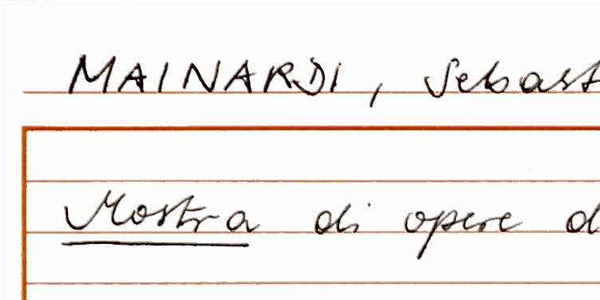 MAINARDI, Sebast
Mostra di opere d